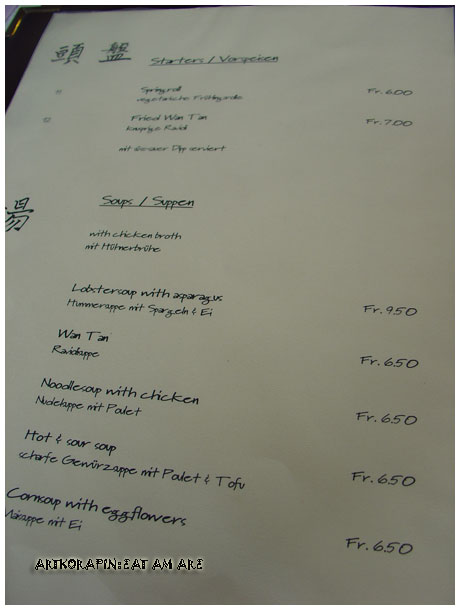 頭盤 Starters / Vorspeisen
Springroll Fr. 6.00
vegetarische Frühlingsrolle
Fried Wan Tan Fr. 7.00
Knusprige Ravioli
mit süssauer Dipp serviert
湯 Soups / Suppen
with chicken broth
mit Hühnerbrühe
Lobstersoup with asparagus
Hummersuppe mit Spargeln & Ei Fr. 9.50
Wan Tan
Raviolisuppe Fr. 6.50
Noodlesoup with chicken
Nudelsuppe mit Poulet Fr. 6.50
Hot & sour soup
scharfe Gewürzsuppe mit Poulet & Tofu Fr. 6.50
Cornsoup with eggflowers
Maissuppe mit Ei Fr. 6.50
ARTKORAPIN:EAT AM ARE